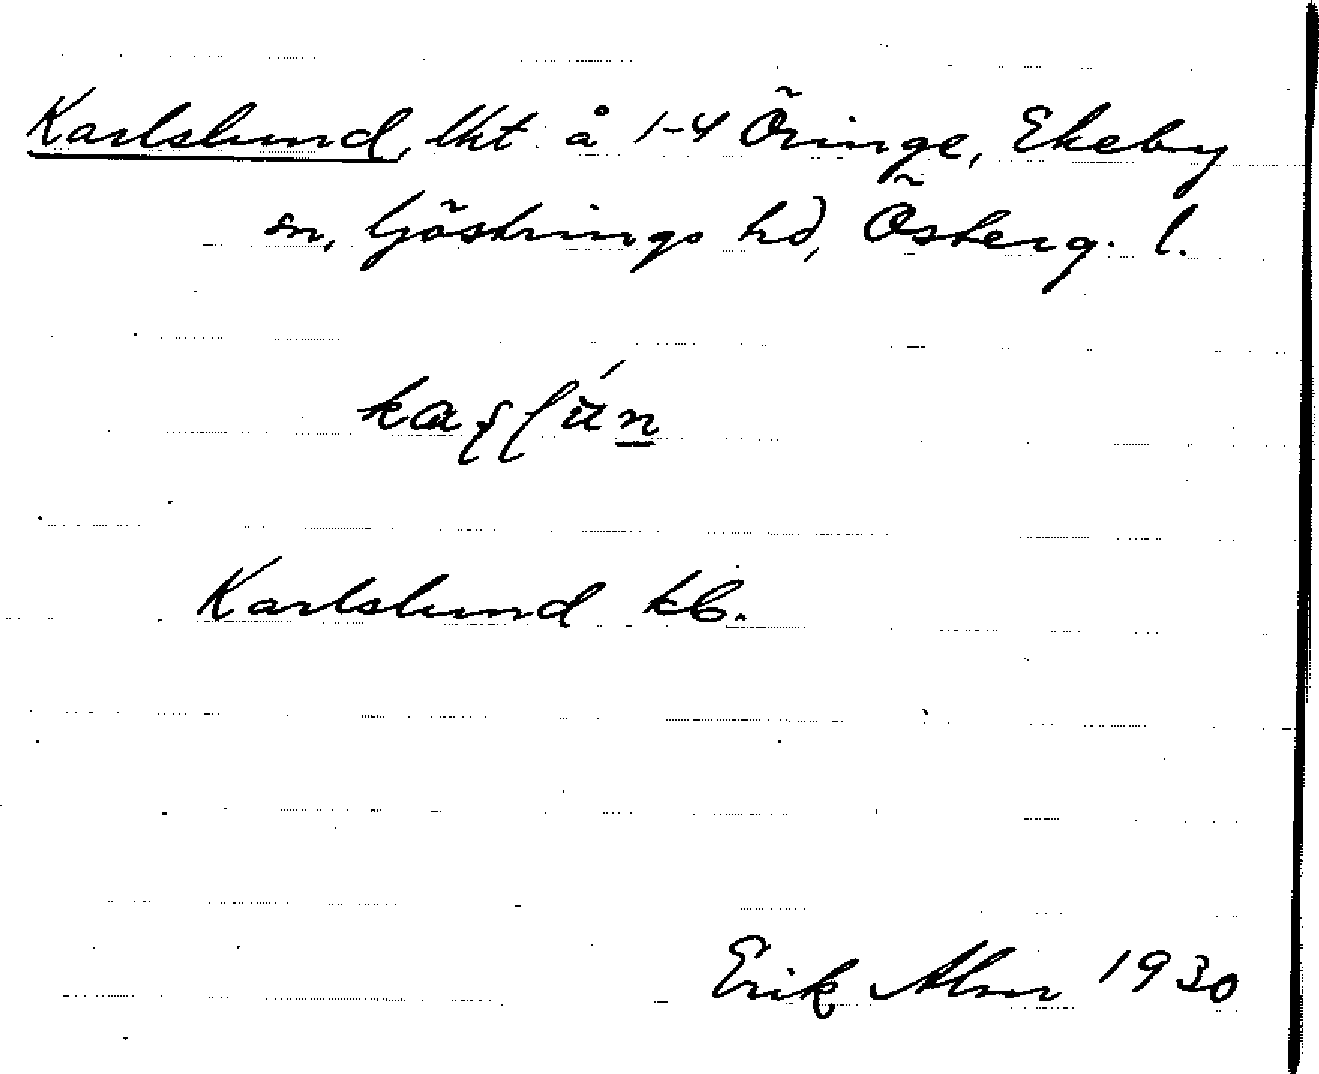 Karlslund, lht å 1-4 Öringe, Ekeby
sn, Göstrings hd, Österg. l.
Karlslund kb.
Erik Alm 1930